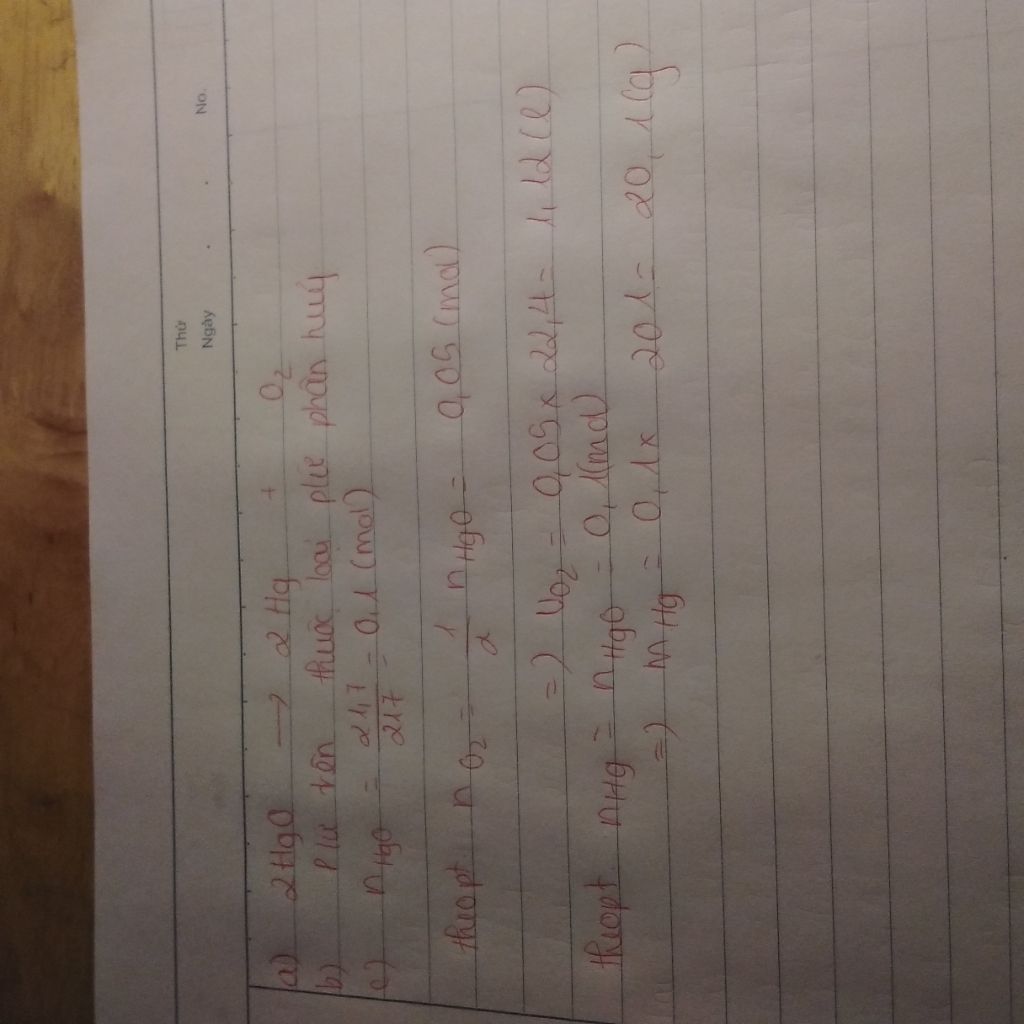 Thứ
Ngày . . No.
a) 2HgO → 2Hg + O2
b) Pư trên thuộc loại pư phân huỷ
c) nHgO = 21,7/217 = 0,1 (mol)
theopt nO2 = 1/2 nHgO = 0,05 (mol)
=) VO2 = 0,05 x 22,4 = 1,12 (l)
theopt nHg = nHgO = 0,1(mol)
=) mHg = 0,1x 201 = 20,1(g)